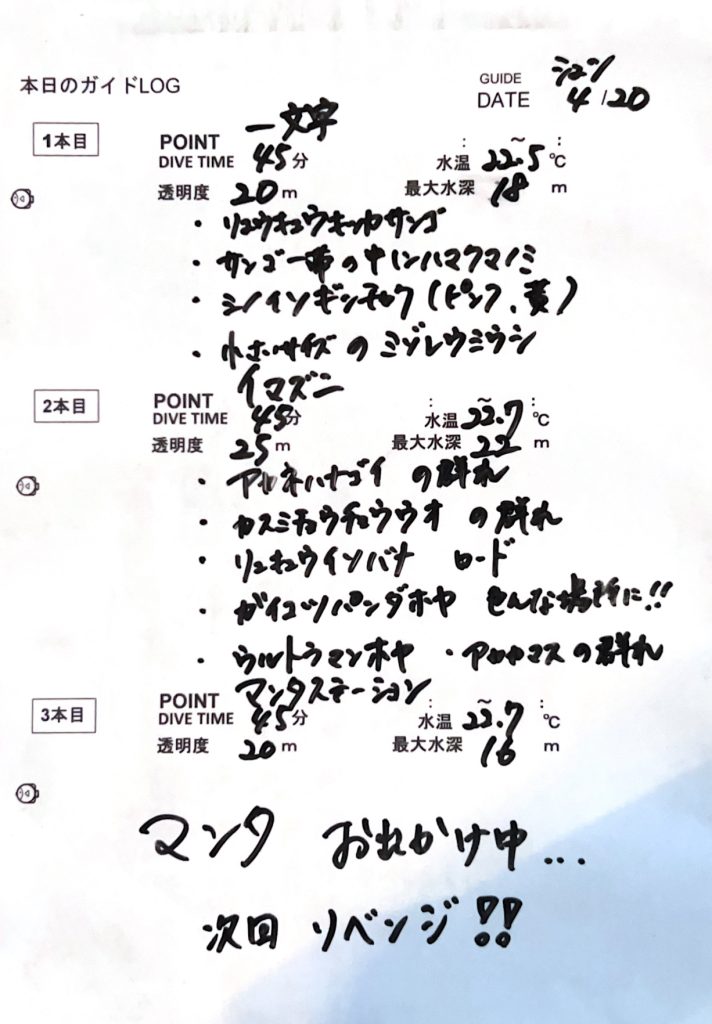 本日のガイドLOG
GUIDE シュン
DATE 4/20
1本目
POINT 一文字
DIVE TIME 45分
: ~ :
水温 22.5℃
透明度 20m
最大水深 18m
・リュウキュウキッカサンゴ
・サンゴ一帯の中にハマクマノミ
・シライソギンチャク(ピンク、黄)
・小さいサイズのミゾレウミウシ
2本目
POINT イマズニ
DIVE TIME 45分
: ~ :
水温 22.7℃
透明度 25m
最大水深 22m
・アカネハナゴイの群れ
・カスミチョウチョウウオの群れ
・リュウキュウイソバナ ロード
・ガイコツパンダホヤ 色んな場所に!!
・ウルトラマンホヤ ・アカヤマスの群れ
3本目
POINT マンタステーション
DIVE TIME 45分
: ~ :
水温 22.7℃
透明度 20m
最大水深 16m
マンタ おれかけ中...
次回 リベンジ!!